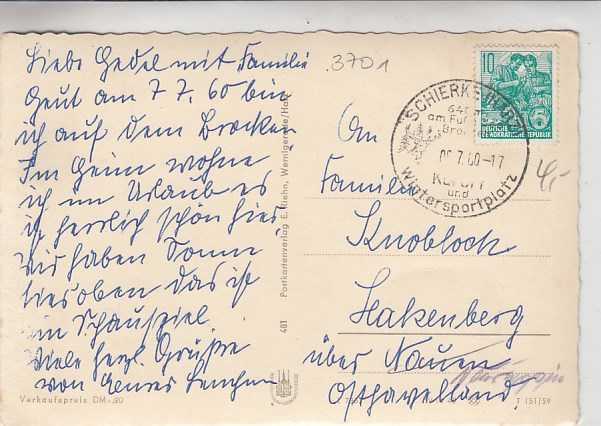 Liebe Gedel mit Familie
Heut am 7.7.60 bin
ich auf dem Brocken,
Im Heim wohne
ich im Urlaub es
ist herrlich schön hier,
Wir haben Sonne
hier oben das ist
ein Schauspiel.
Viele herzl. Grüße
von Eurer Lenchen
Verkaufspreis DM -.20
481 Postkartenverlag E. Riehn, Wernigerode/Harz
3701
10
DEUTSCHE
DEMOKRATISCHE REPUBLIK
SCHIERKE (HARZ)
640
am Fuße
Bro
08.7.60-17
Kurort
und
Wintersportplatz
An
Familie
Knoblock
Hakenberg
über Nauen
Osthavelland.
T 151/59